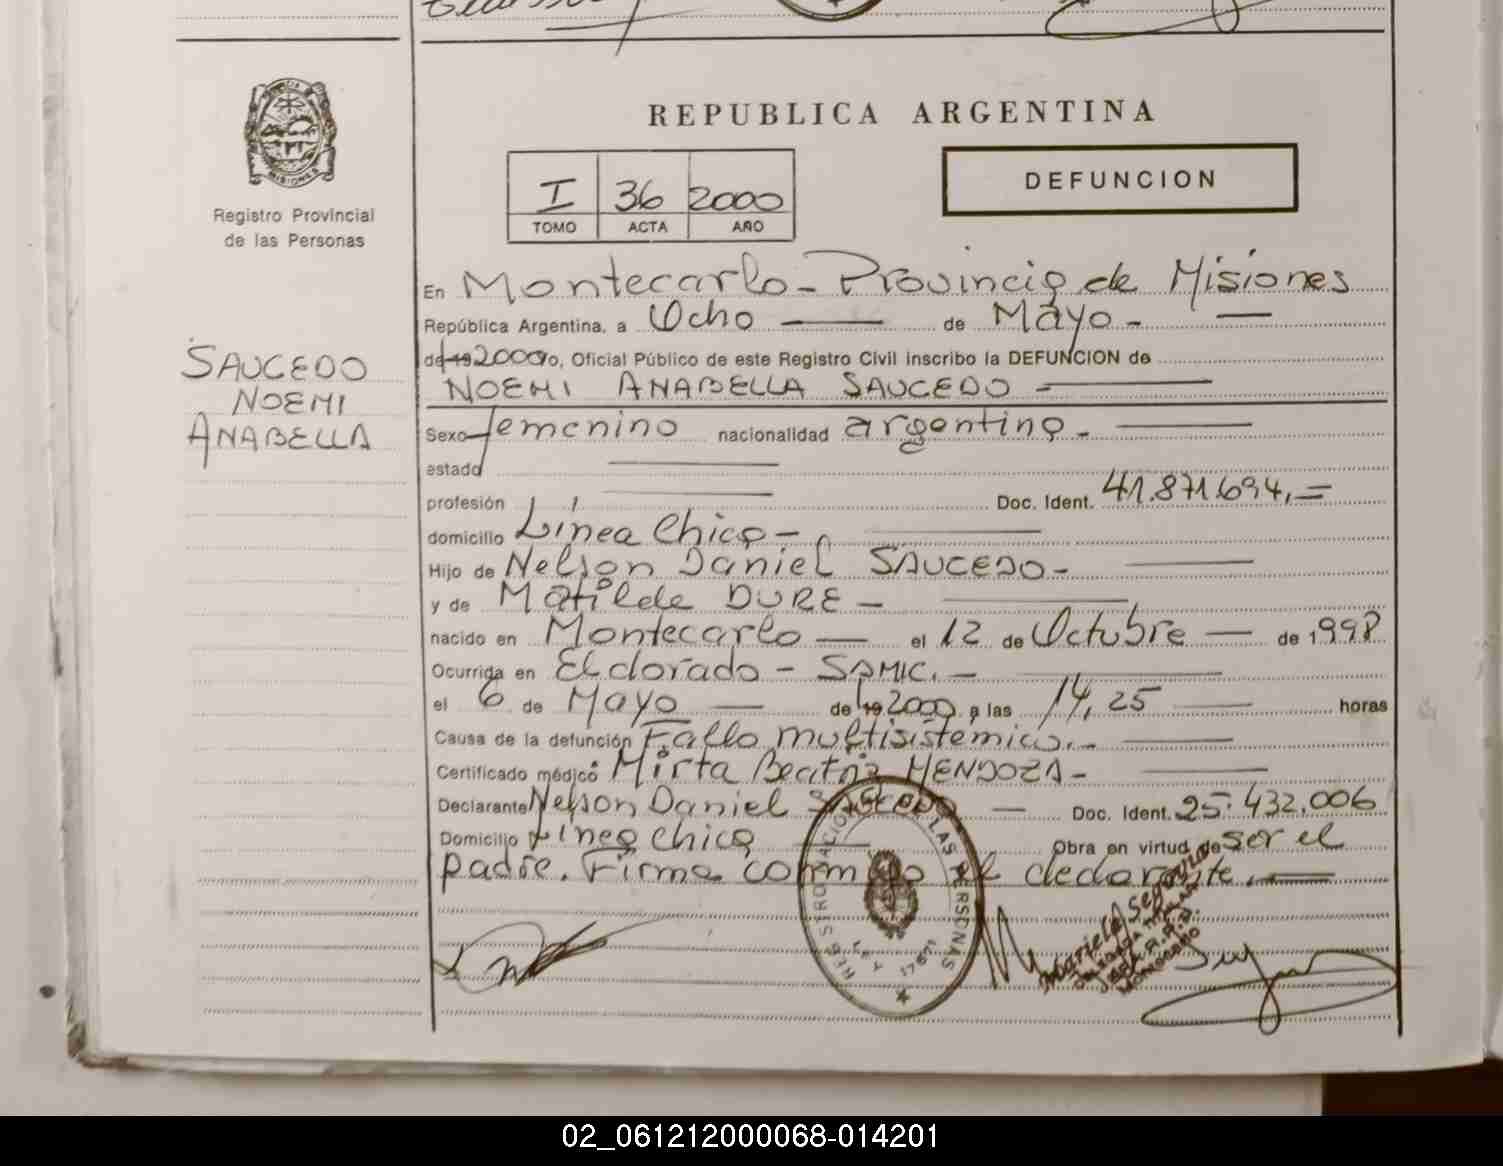 REPUBLICA ARGENTINA
PROVINCIA
MISIONES
Registro Provincial
de las Personas
I 36 2000
TOMO ACTA AÑO
DEFUNCION
En Montecarlo - Provincia de Misiones
República Argentina, a Ocho de Mayo -
de 19 2000 yo, Oficial Público de este Registro Civil inscribo la DEFUNCION de
NOEMI ANABELLA SAUCEDO
SAUCEDO
NOEMI
ANABELLA
Sexo femenino nacionalidad argentina -
estado
profesión Doc. Ident. 41.871.694.=
domicilio Línea Chica -
Hijo de Nelson Daniel SAUCEDO -
y de Matilde DURE -
nacido en Montecarlo el 12 de Octubre de 1998
Ocurrida en Eldorado - SAMIC. -
el 6 de Mayo de 19 2000 a las 14,25 horas
Causa de la defunción Fallo multisistémico. -
Certificado médico Mirta Beatriz MENDOZA -
Declarante Nelson Daniel SAUCEDO Doc. Ident. 25.432.006
Domicilio Línea Chica Obra en virtud de ser el
padre. Firma conmigo el declarante.
REGISTRO NACIONAL DE LAS PERSONAS
17671
02_061212000068-014201